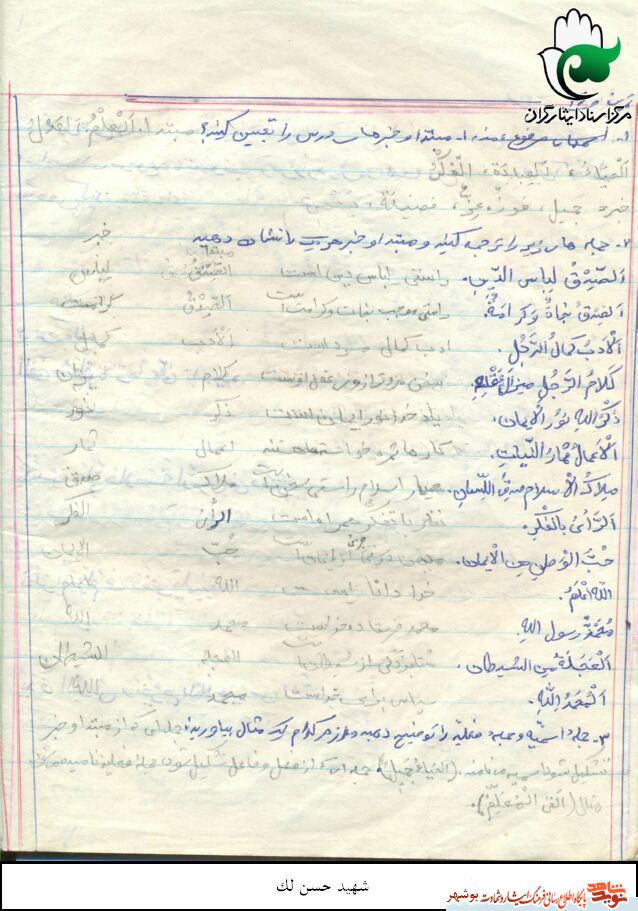 مرکز اسناد ایثارگران
مبتدا و خبرهای درس را تعیین کنید؟ مبتدا: اَلْعِلْمُ، اَلْعَدْلُ
اَلْحَیاءُ، اَلْعِبادَة، اَلْفِکْرُ
خبر: جمیل، فَضیلة،
۲- جمله های زیر را ترجمه کنید و مبتدا و خبر هر یک را نشان دهید خبر
مبتدا
اَلصِّدْقُ لِباسُ الدّینِ. راستی لباس دین است الصِّدْقُ لباس
اَلصِّدْقُ نَجاةٌ وَ کَرامَةٌ. راستی موجب نجات و کرامت است اَلصِّدْقُ
اَلْأَدَبُ کَمالُ الرَّجُلِ. ادب کمال مرد است اَلْأَدَب کمال
کَلامُ الرَّجُلِ میزانُ عَقْلِهِ. سخن مرد ترازوی عقل اوست کلام میزان
ذِکْرُ اللهِ نورُ الْایمانِ. یاد خدا نور ایمان است ذکر نور
اَلْأَعمالُ ثِمارُ النّیّاتِ. کارها ثمره خواسته ها هستند اعمال ثمار
مِلاکُ الْاِسلامِ صِدْقُ اللِّسانِ. معیار اسلام راستی سخن است ملاک صدق
اَلرَّأیُ بِالْفِکْرِ. نظر با تفکر همراه است الرأی الفکر
حُبُّ الْوَطَنِ مِنَ الْایمانِ. میهن دوستی جزئی از ایمان است حُبّ الایمان
اَللهُ اَعْلَمُ. خدا دانا است الله اعلم
مُحَمَّدٌ رسولُ اللهِ. محمد فرستاده خداست محمد الله
اَلْعَجَلَةُ مِنَ الشیطان. شتابزدگی از شیطان است العجلة الشیطان
اَلْحَمْدُ لِلّهِ. سپاس برای خداست
۳- جمله اسمیّه و جمله فعلیّه را توضیح دهید و از هر کدام یک مثال بیاورید؟ جمله ای که از مبتدا و خبر
تشکیل شود اسمیه می نامند. (اَلْحَیاءُ جَمیلٌ) جمله ای که از فعل و فاعل تشکیل شود جمله فعلیه نامیده می شود
مثال (الْمُعَلِّمُ).
شهید حسن لك
نوید شاهد پایگاه اطلاع رسانی فرهنگ ایثار و شهادت بوشهر